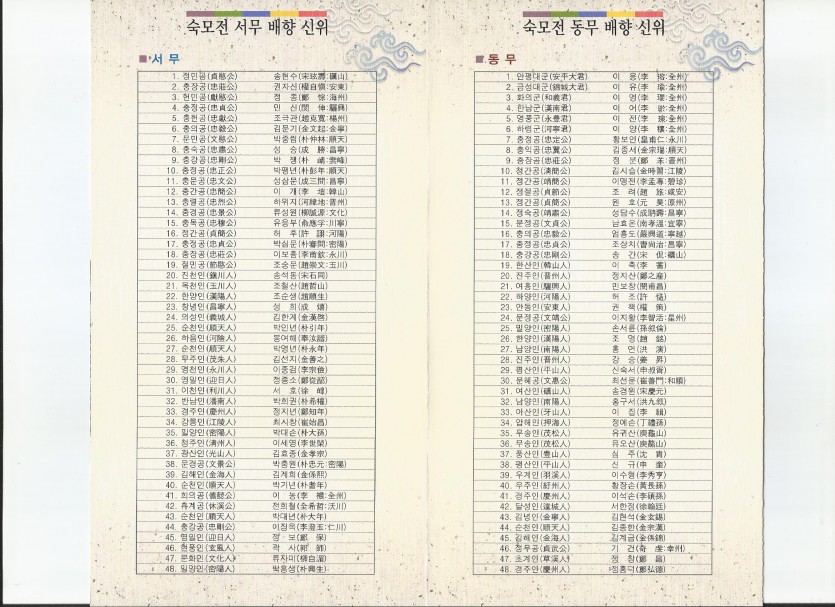 숙모전 서무 배향 신위
서 무
1. 정민공(貞愍公) 송현수(宋玹壽:礪山)
2. 충장공(忠莊公) 권자신(權自愼:安東)
3. 헌민공(獻愍公) 정 종(鄭 悰:海州)
4. 충정공(忠貞公) 민 신(閔 伸:驪興)
5. 충헌공(忠獻公) 조극관(趙克寬:楊州)
6. 충의공(忠毅公) 김문기(金文起:金寧)
7. 문민공(文愍公) 박중림(朴仲林:順天)
8. 충숙공(忠肅公) 성 승(成 勝:昌寧)
9. 충강공(忠剛公) 박 쟁(朴 崝:雲峰)
10. 충정공(忠正公) 박팽년(朴彭年:順天)
11. 충문공(忠文公) 성삼문(成三問:昌寧)
12. 충간공(忠簡公) 이 개(李 塏:韓山)
13. 충렬공(忠烈公) 하위지(河緯地:晋州)
14. 충경공(忠景公) 류성원(柳誠源:文化)
15. 충목공(忠穆公) 유응부(兪應孚:川寧)
16. 정간공(貞簡公) 허 후(許 詡:河陽)
17. 충정공(忠貞公) 박심문(朴審問:密陽)
18. 충장공(忠莊公) 이보흠(李甫欽:永川)
19. 절민공(節愍公) 조숭문(趙崇文:玉川)
20. 진천인(鎭川人) 송석동(宋石同)
21. 옥천인(玉川人) 조철산(趙哲山)
22. 한양인(漢陽人) 조순생(趙順生)
23. 창녕인(昌寧人) 성 희(成 熺)
24. 의성인(義城人) 김한계(金漢啓)
25. 순천인(順天人) 박인년(朴引年)
26. 하음인(河陰人) 봉여해(奉汝諧)
27. 순천인(順天人) 박영년(朴永年)
28. 무주인(茂朱人) 김선지(金善之)
29. 영천인(永川人) 이종검(李宗儉)
30. 영일인(迎日人)
31. 이천인(利川人) 서 호(徐 )
32. 반남인(潘南人) 박희권(朴希權)
33. 경주인(慶州人) 정지년(鄭知年)
34. 강릉인(江陵人) 최시창(崔始昌)
35. 밀양인(密陽人) 박대손(朴大孫)
36. 청주인(清州人) 이세영(李世榮)
37. 광산인(光山人) 김효종(金孝宗)
38. 문경공(文景公) 박충원(朴忠元:密陽)
39. 김해인(金海人) 김계희(金係熙)
40. 순천인(順天人) 박기년(朴耆年)
41. 희의공(僖懿公) 이 농(李 :全州)
42. 휴계공(休溪公) 전희철(全希哲:沃川)
43. 순천인(順天人) 박대년(朴大年)
44. 충강공(忠剛公) 이징옥(李澄玉:仁川)
45. 영일인(迎日人) 정 보(鄭 保)
46. 현풍인(玄風人) 곽 사(郭 師)
47. 문화인(文化人) 류자미(柳自湄)
48. 밀양인(密陽人) 박흥생(朴興生)
숙모전 동무 배향 신위
동 무
1. 안평대군(安平大君) 이 용(李 瑢:全州)
2. 금성대군(錦城大君) 이 유(李 瑜:全州)
3. 화의군(和義君) 이 영(李 瓔:全州)
4. 한남군(漢南君) 이 어(李 :全州)
5. 영풍군(永豊君) 이 전(李 瑔:全州)
6. 하령군(河寧君) 이 양(李 穰:全州)
7. 충정공(忠定公) 황보인(皇甫仁:永川)
8. 충익공(忠翼公) 김종서(金宗瑞:順天)
9. 충장공(忠莊公) 정 분(鄭 苯:晋州)
10. 청간공(淸簡公) 김시습(金時習:江陵)
11. 정간공(靖簡公) 이맹전(李孟專:碧珍)
12. 정절공(貞節公) 조 려(趙 旅:咸安)
13. 정간공(貞簡公) 원 호(元 昊:原州)
14. 정숙공(靖肅公) 성담수(成聃壽:昌寧)
15. 문정공(文貞公) 남효온(南孝溫:宜寧)
16. 충의공(忠毅公) 엄흥도(嚴興道:寧越)
17. 충정공(忠貞公) 조상치(曺尙治:昌寧)
18. 충강공(忠剛公) 송 간(宋 侃:礪山)
19. 한산인(韓山人) 이 축(李 蓄)
20. 진주인(晋州人) 정지산(鄭之産)
21. 여흥인(驪興人) 민보창(閔甫昌)
22. 하양인(河陽人) 허 조(許 慥)
23. 안동인(安東人) 권 책(權 策)
24. 문정공(文靖公) 이지활(李智活:星州)
25. 밀양인(密陽人) 손서륜(孫叙倫)
26. 한양인(漢陽人) 조 명(趙 銘)
27. 남양인(南陽人) 홍 연(洪 演)
28. 진주인(晋州人) 강 승(姜 昇)
29. 평산인(平山人) 신숙서(申叔胥)
30. 문혜공(文惠公) 최선문(崔善門:和順)
31. 여산인(礪山人) 송경원(宋慶元)
32. 남양인(南陽人) 홍구서(洪九叙)
33. 아산인(牙山人) 이 집(李 緝)
34. 압해인(押海人) 정예손(丁禮孫)
35. 무송인(茂松人) 유귀산(庾龜山)
36. 무송인(茂松人) 유오산(庾鰲山)
37. 풍산인(豊山人) 심 주(沈 )
38. 평산인(平山人) 신 규(申 奎)
39. 우계인(羽溪人) 이수형(李秀亨)
40. 우주인(紆州人) 황장손(黃長孫)
41. 경주인(慶州人) 이석손(李碩孫)
42. 달성인(達城人) 서한정(徐翰廷)
43. 김녕인(金寧人) 김현석(金玄錫)
44. 순천인(順天人) 김종한(金宗漢)
45. 김해인(金海人) 김계금(金係錦)
46. 정무공(貞武公) 기 건(奇 虔:幸州)
47. 초계인(草溪人) 정 창(鄭 昌)
48. 경주인(慶州人) 정홍덕(鄭弘德)